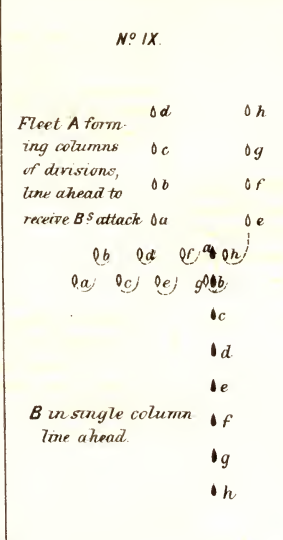 Nº IX.
d h
Fleet A form-
ing columns c g
of divisions,
line ahead to b f
receive Bˢ attack a e
b d f a h
a c e g b
c
d
e
B in single column f
line ahead.
g
h